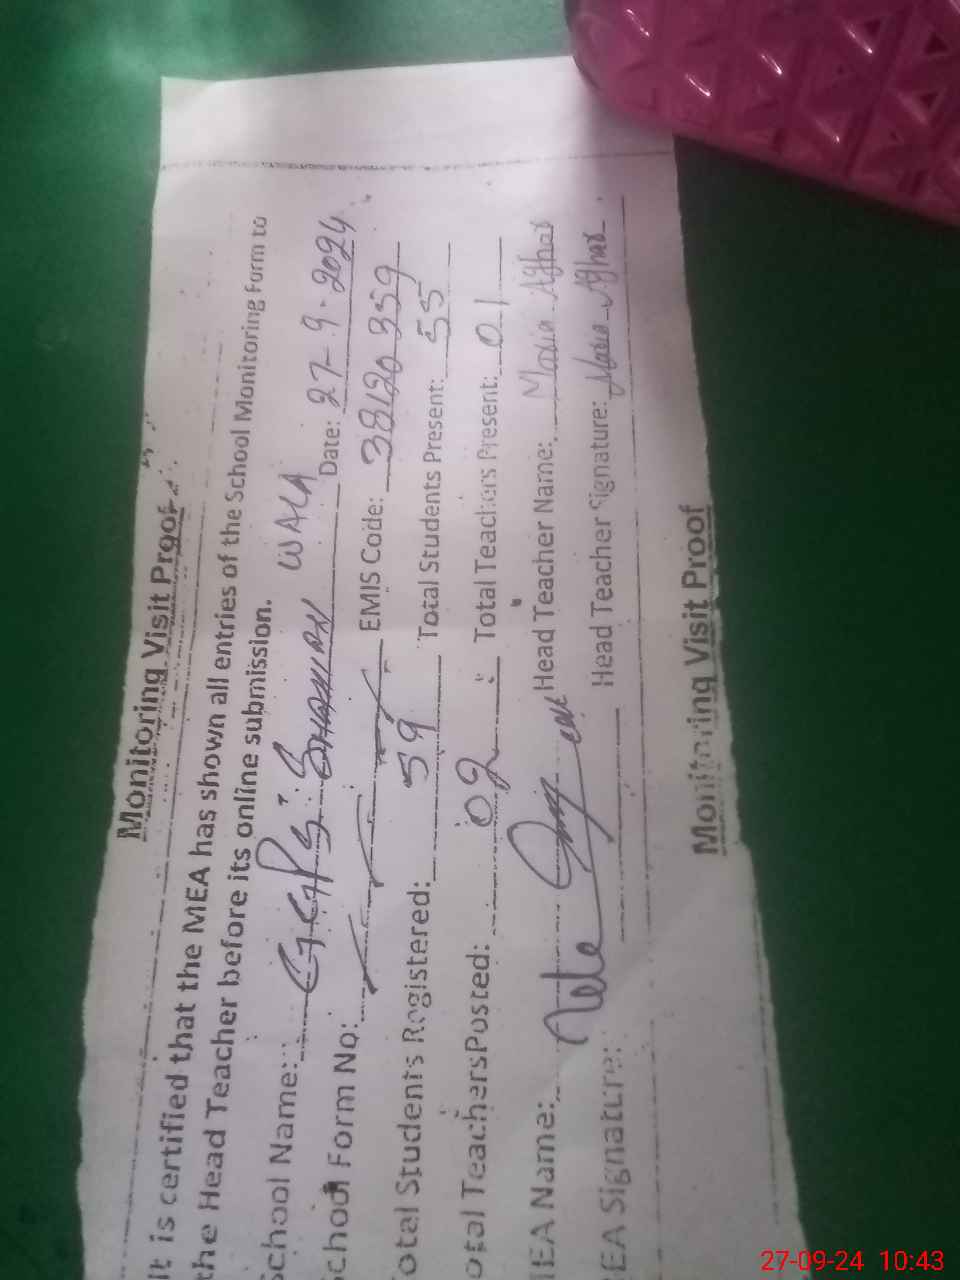 Monitoring Visit Proof
It is certified that the MEA has shown all entries of the School Monitoring Form to
the Head Teacher before its online submission.
School Name: GGPS. WALA Date: 27-9-2024
School Form No: EMIS Code: 38120359
Total Students Registered: 59 Total Students Present: 55
Total Teachers Posted: 02 Total Teachers Present: 01
MEA Name: Head Teacher Name: Maria Asghar
MEA Signature: Head Teacher Signature: Maria Asghar
Monitoring Visit Proof
27-09-24 10:43